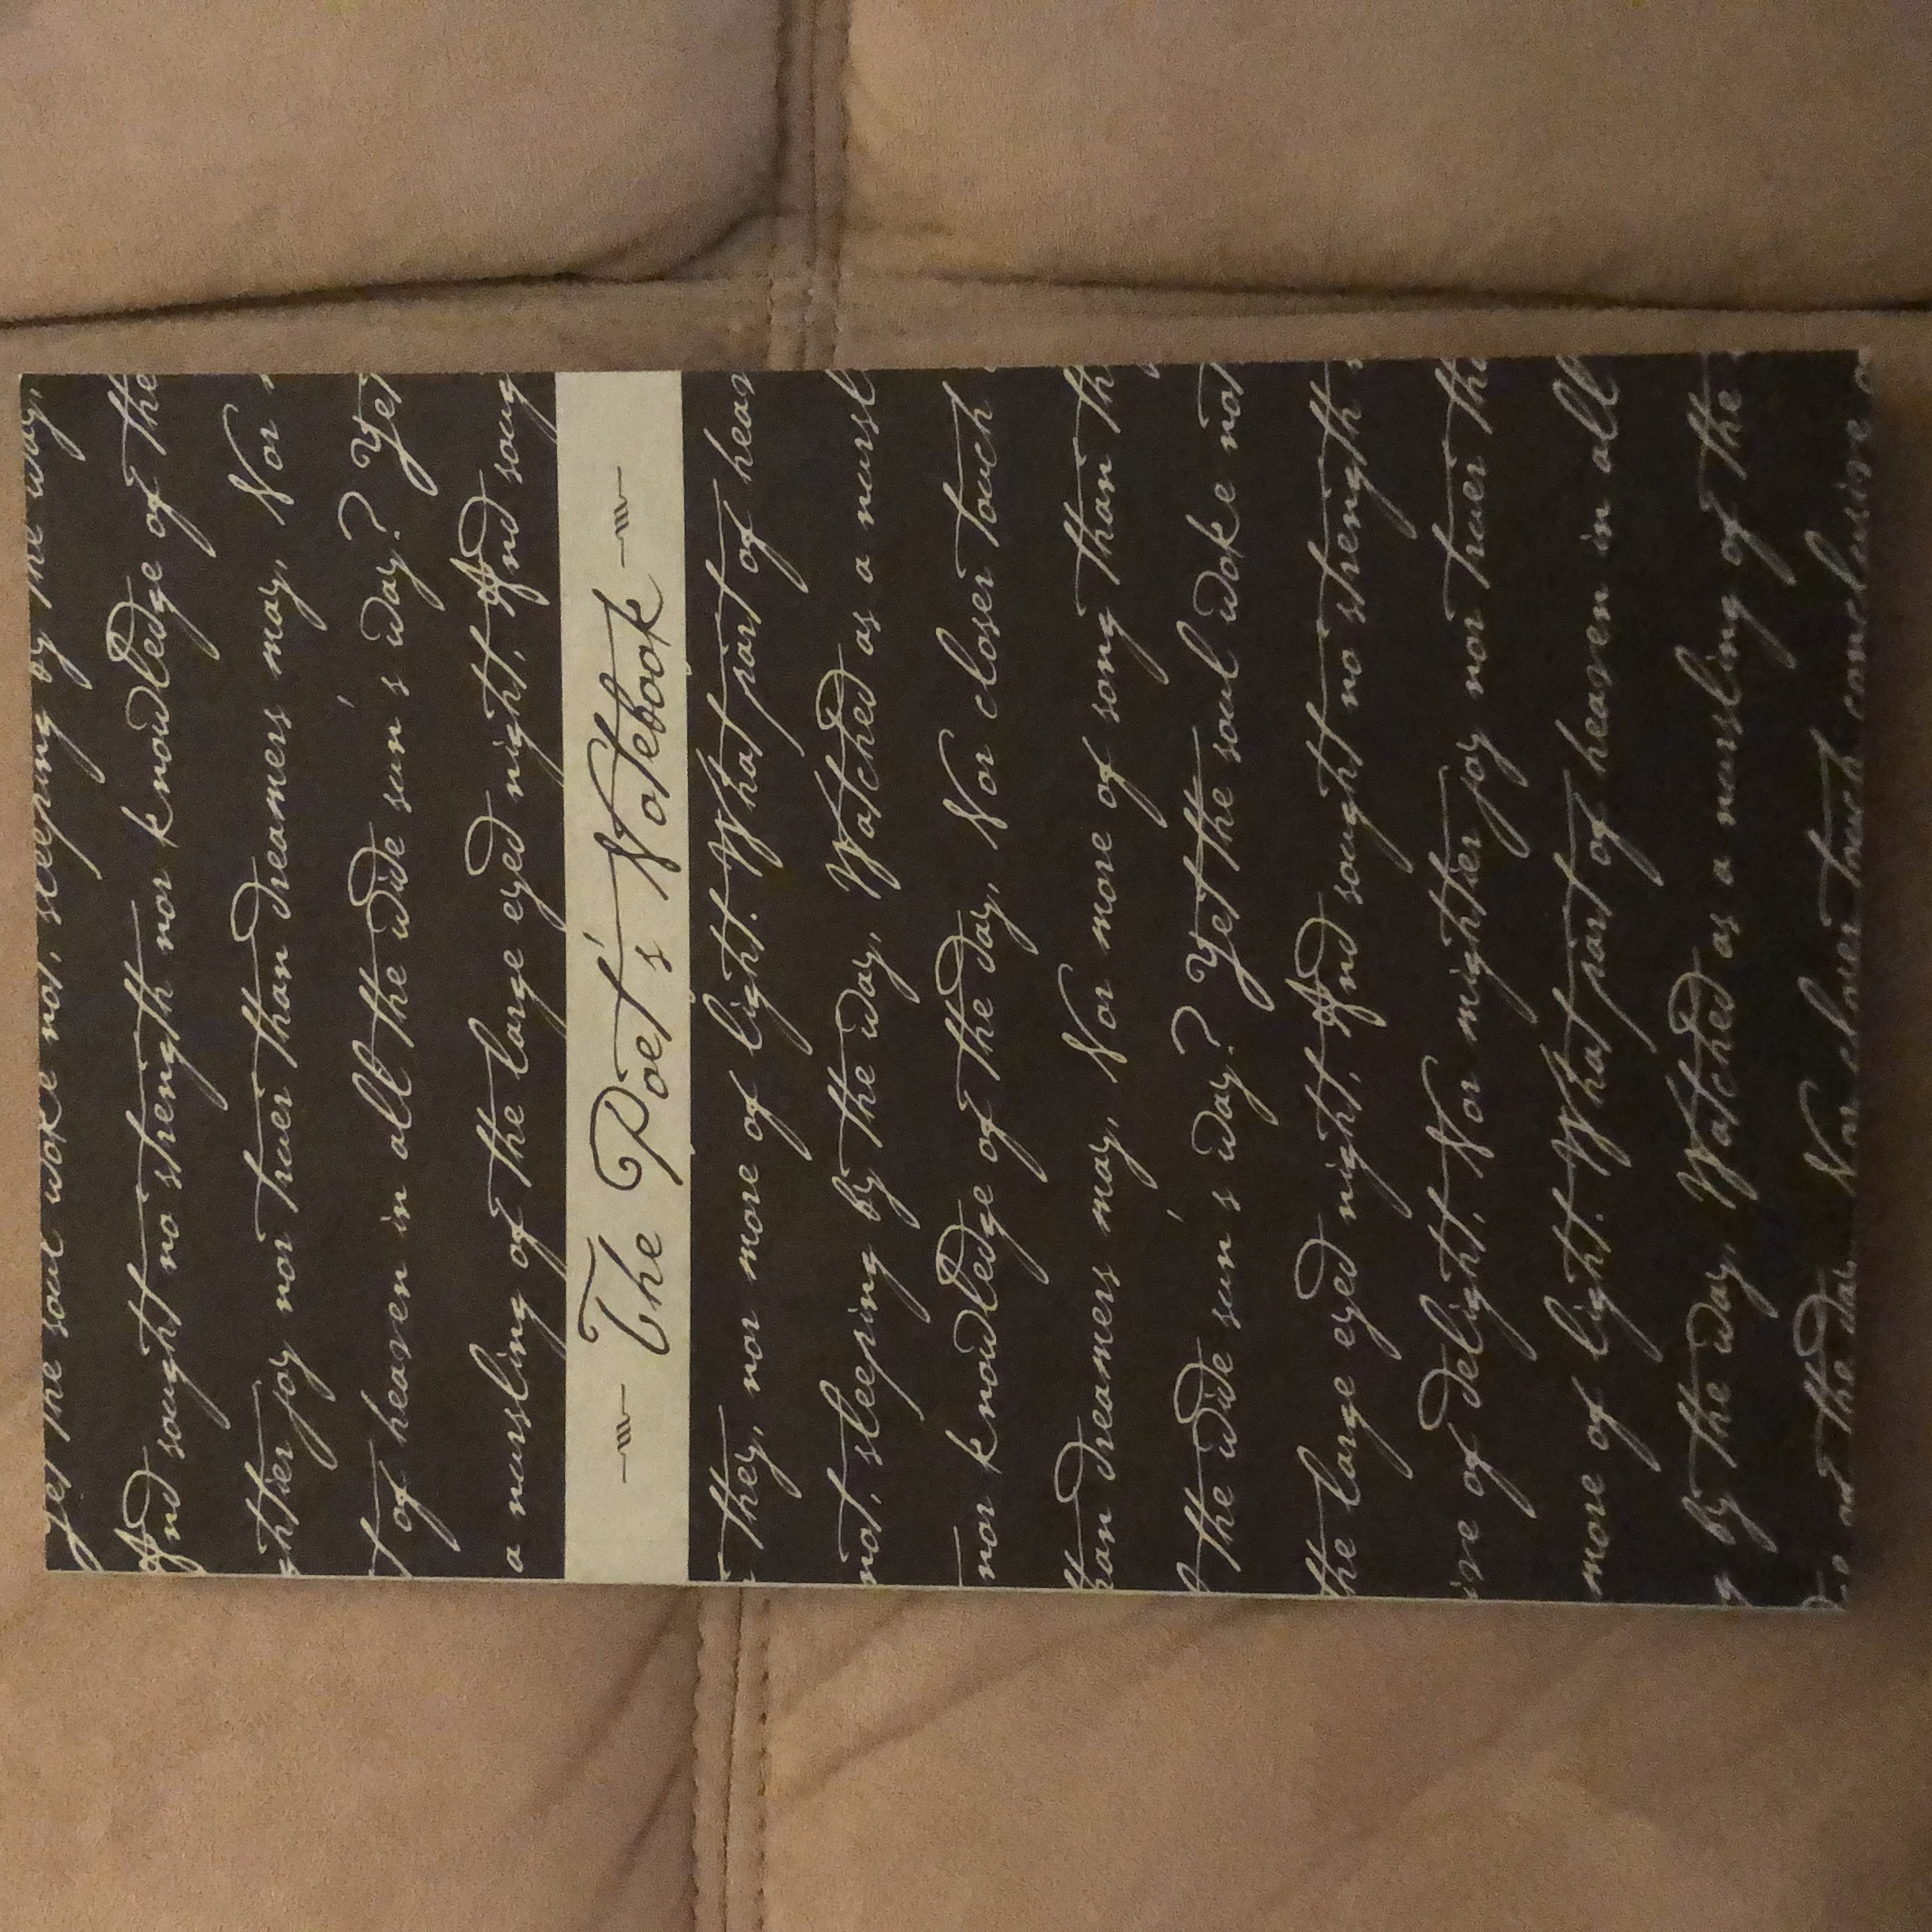 Yet the soul woke not, sleeping by the way,
And sought no strength nor knowledge of the
ghtier joy nor truer than dreamers may, Nor
of heaven in all the wide sun's way? Yet
a nursling of the large eyed night, And soug
The Poet's Notebook
they, nor more of light. What part of heav
not, sleeping by the way, Watched as a nursl
nor knowledge of the day, Nor closer touch
than dreamers may, Nor more of song than th
the wide sun's way? Yet the soul woke not
the large eyed night, And sought no strength
ive of delight, Nor mightier joy nor truer tha
more of light. What part of heaven in all
g by the way, Watched as a nursling of the
of the day, Nor closer touch conclusive o